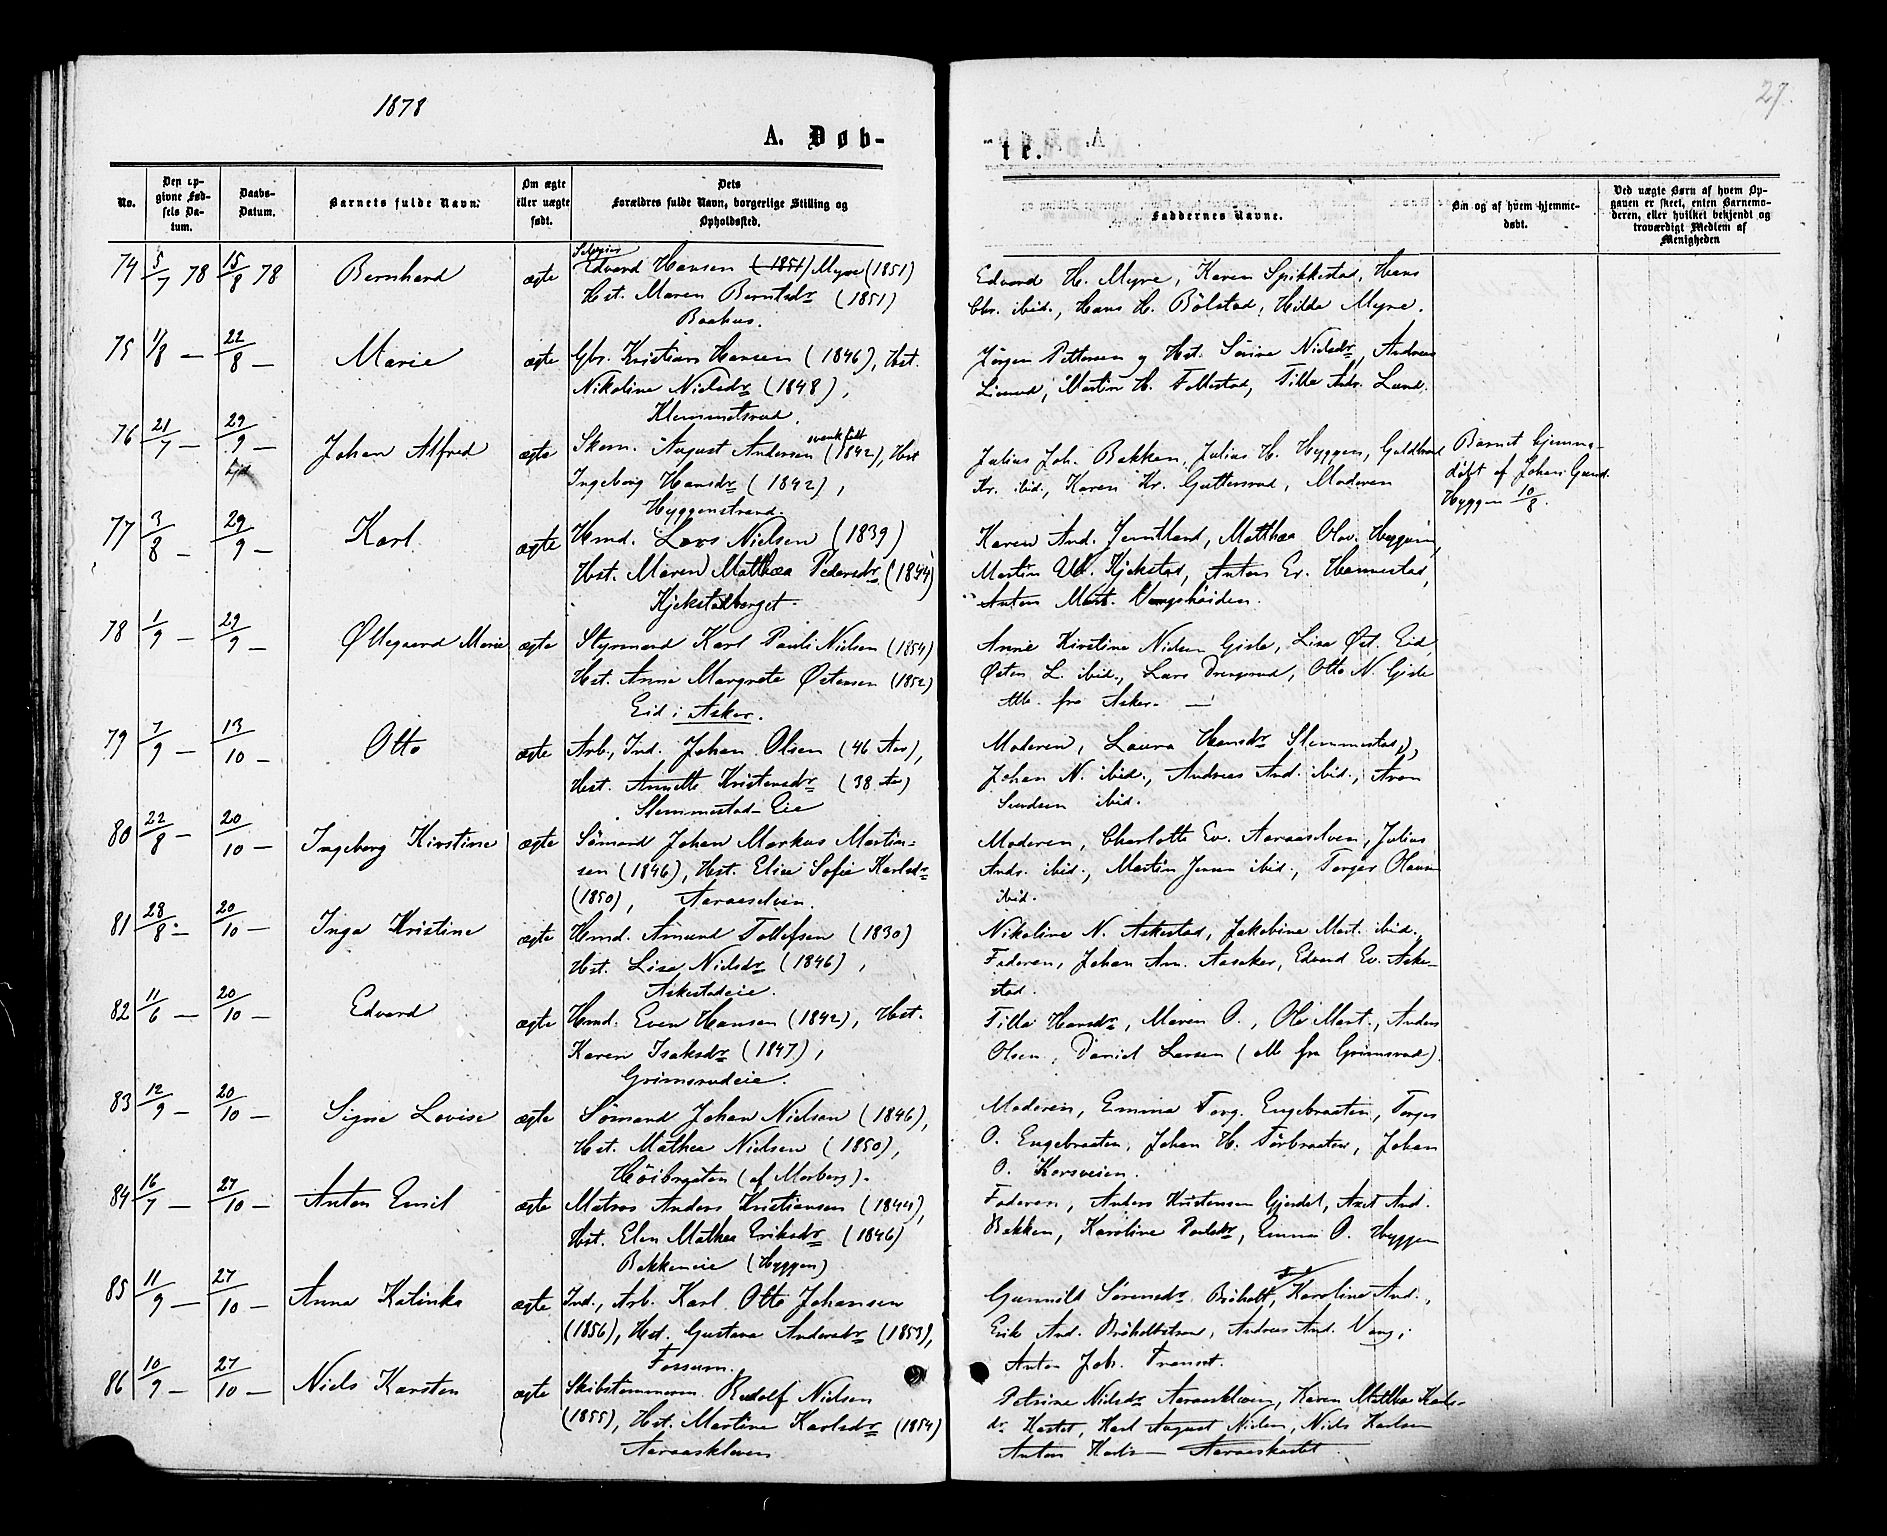 1878
27.
A. Døb-
te.
No.
Den op-
givne Fød-
sels Da-
tum.
Daabs-
Datum.
Barnets fulde Navn.
Om ægte
eller uægte
født.
Dets
Forældres fulde Navn, borgerlige Stilling og
Opholdssted.
Faddernes Navne.
Om og af hvem hjemme-
døbt.
Ved uægte Børn af hvem Op-
gaven er skeet, enten Barnemo-
deren, eller hvilket bekjendt og
troværdigt Medlem af
Menigheden
74 5/7 78 15/8 78 Bernhard ægte
Edvard Hansen (1851) Myre (1851)
Hst. Maren Berntsdr (1851)
Baahus.
Edvard H. Myre, Karen Spikkestad, Hans
Chr. ibid., Hans H. Bølstad, Hilda Myre.
75 11/8 — 22/8 — Marie ægte
Gbr. Kristian Hansen (1846), Hst.
Nikoline Nielsdr (1848),
Klemmetsrud.
Jørgen Pettersen og Hst. Sørine Nielsdr, Andreas
Lierud, Martin H. Follestad, Tilla Andr. Lund.
76 21/7 — 29/9 — Johan Alfred ægte
Skom. August Andersen (1842), Hst
Ingeborg Hansdr (1842),
Hyggenstrand.
Julius Joh. Bakken, Julius H. Hyggen, Guldbrand
Kr. ibid., Karen Kr. Guttersrud, Moderen
Barnet hjemme-
døbt af Johan Gund.
Hyggen 10/8.
77 3/8 — 29/9 — Karl ægte
Hmd. Lars Nielsen (1839)
Hst. Maren Mathea Pedersdr (1844)
Kjekstadberget.
Karen And. Jemtland, Matthea Olav. Hyggen,
Martin Ul. Kjekstad, Anton Er. Hennestad,
Anton Mart. Vangshøiden.
78 1/9 — 29/9 — Øllegaard Marie ægte
Styrmand Karl Pauli Nielsen (1854)
Hst. Anna Margrete Østensen (1852)
Eid i Asker.
Anne Kirstine Nielsen Gisle, Lisa Øst. Eid,
Østen L. ibid., Lars Drengsrud, Otto N. Gisle
Alle fra Asker. —
79 7/9 — 13/10 — Otto ægte
Arb., Ind. Johan Olsen (46 Aar),
Hst. Annette Kristensdr (38 Aar)
Slemmestad-Eie
Moderen, Laura Hansdr Slemmestad,
Johan N. ibid., Andreas And. ibid., Aron
ibid.
80 22/8 — 20/10 — Ingeborg Kirstine ægte
Sømand Johan Markus Martin-
sen (1846), Hst. Elise Sofie Karlsdr
(1850), Aaraaselven.
Moderen, Charlotte Ev. Aaraaselven, Julius
Andr. ibid., Martin Jensen ibid., Torger Olausen
ibid.
81 28/8 — 20/10 — Inga Kristine ægte
Hmd. Amund Tollefsen (1830)
Hst. Lisa Nielsdr (1846),
Askestadeie.
Nikoline N. Askestad, Jakobine Mart. ibid.,
Faderen, Johan Am. Aasaker, Edvard Ev. Aske-
stad.
82 11/6 — 20/10 — Edvard ægte
Hmd. Even Hansen (1842), Hst.
Karen Isaksdr (1847),
Grimsrudeie.
Tilla Hansdr, Maren O., Ole Mart., Anders
Olsen, Daniel Larsen (Alle fra Grimsrud).
83 12/9 — 20/10 — Signe Lovise ægte
Sømand Johan Nielsen (1846),
Hst. Mathea Nielsen (1850),
Høibraaten (af Morberg).
Moderen, Emma Torg. Engebraaten, Torger
O. Engebraaten, Johan H. Torbraaten, Johan
O. Korsveien.
84 16/7 — 27/10 — Anton Emil ægte
Matros Anders Kristiansen (1844),
Hst. Elen Mathea Eriksdr (1846)
Bakkeneie (Hyggen)
Faderen, Anders Kristensen Gjerdet, Axel And.
Bakken, Karoline Paulsdr, Emma O. Hyggen
85 11/9 — 27/10 — Anna Katinka ægte
Ind., Arb. Karl Otto Johansen
(1856), Hst. Gustava Andersdr (1853),
Fossum.
Gunnild Sørensdr Brøholt, Karoline And.,
Erik And. Brøholt, Andreas And. Vang,
Anton Joh. Transet.
86 10/9 — 27/10 — Niels Karsten ægte
Skibstømmerm. Rudolf Nielsen
(1855), Hst. Martine Karlsdr (1854)
Aaraaskleven
Petrine Nielsdr Aaraaskleven, Karen Mathea Karls-
dr Kastet, Karl August Nielsen, Niels Karlsen
Anton Karlsen Aaraaskastet.